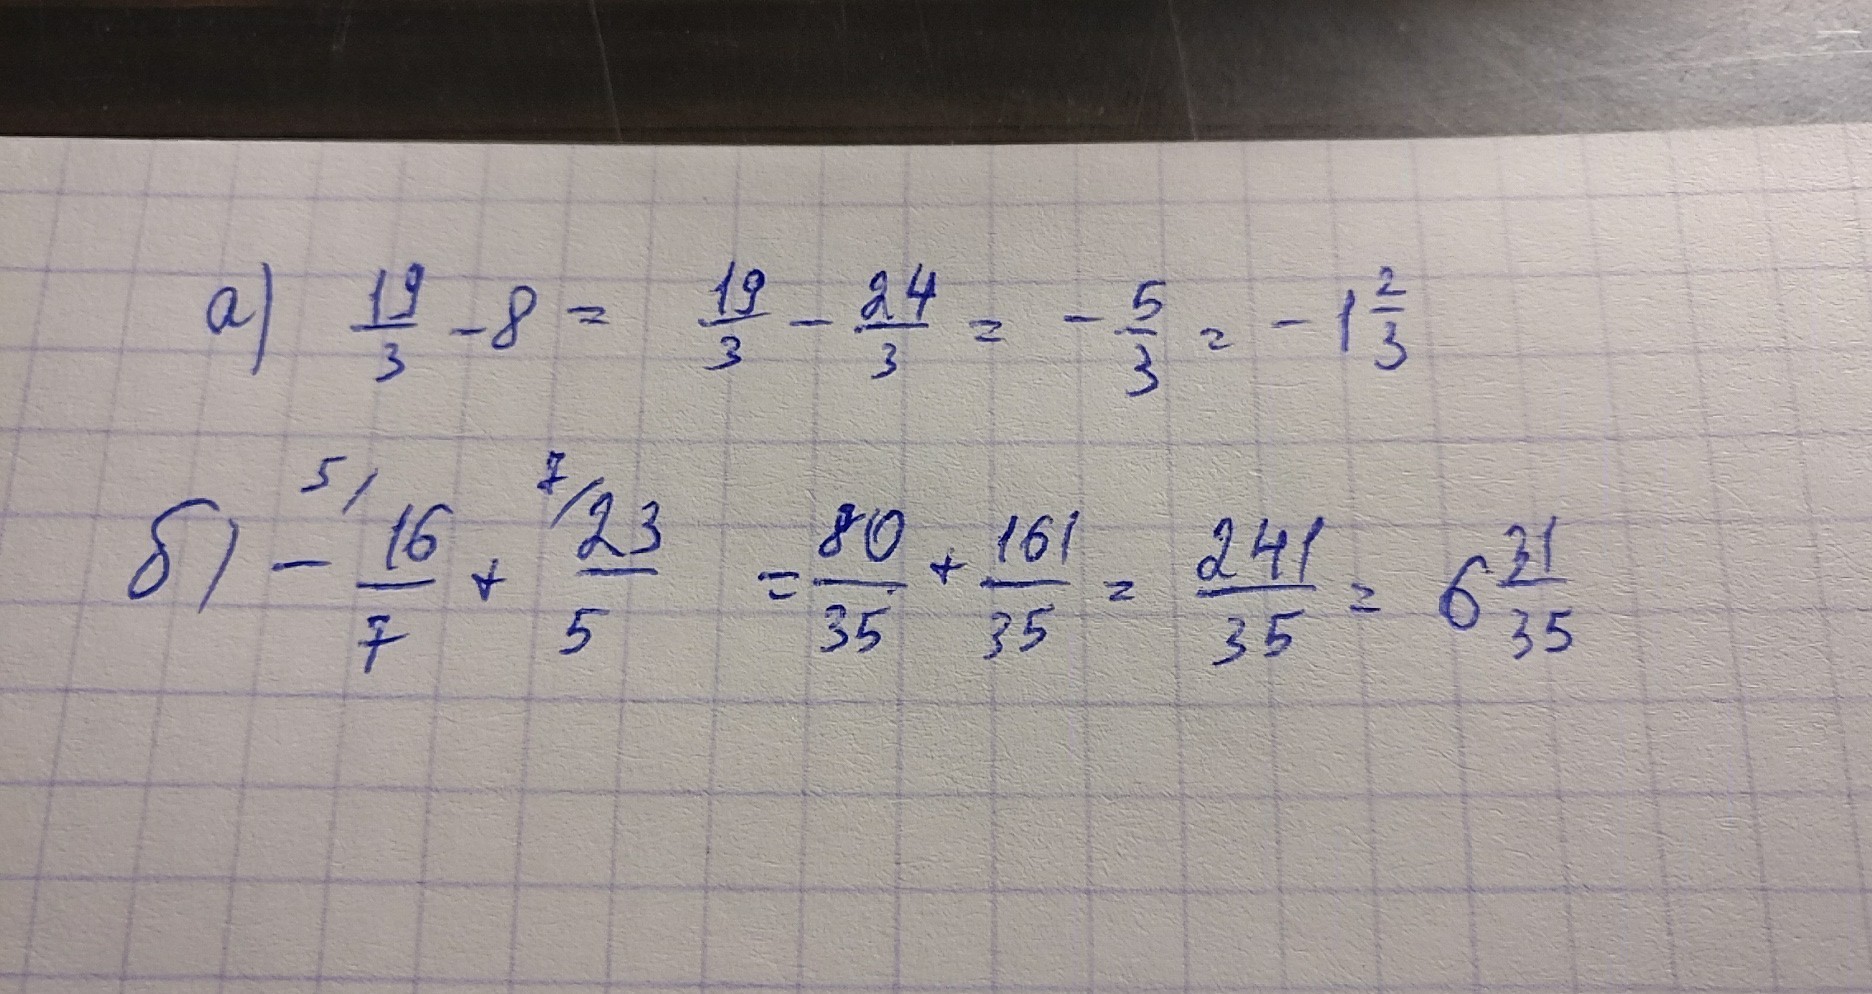 а) 19/3 - 8 = 19/3 - 24/3 = - 5/3 = - 1 2/3
б) - 5/ 16/7 + 7/ 23/5 = 80/35 + 161/35 = 241/35 = 6 31/35